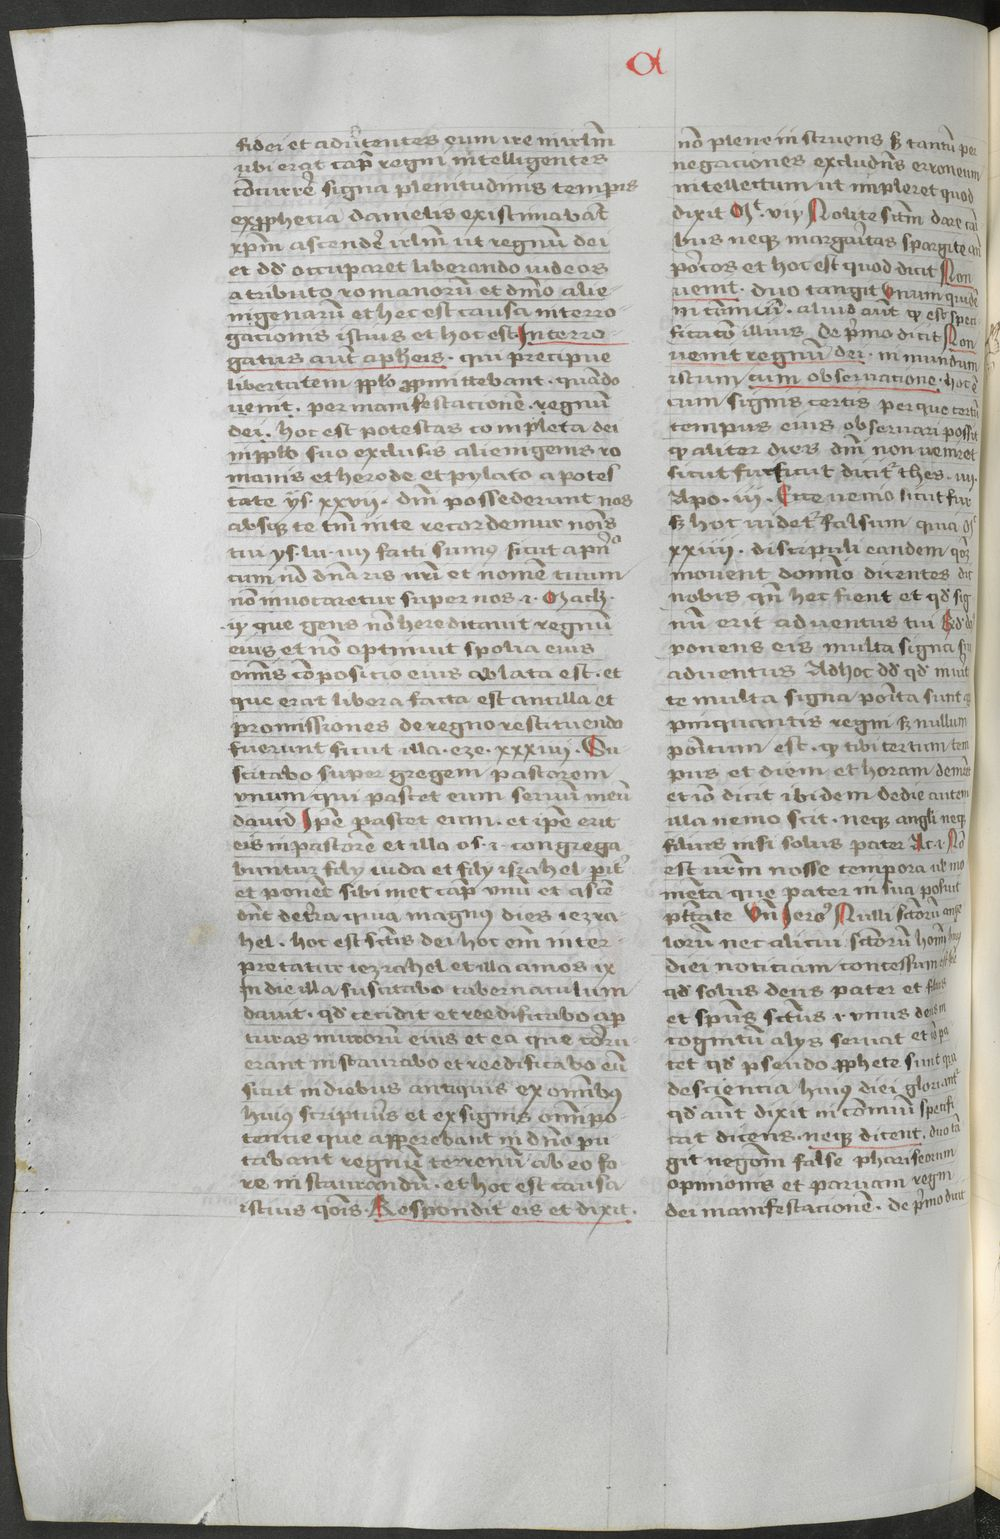 α
fidei et aduertentes eum ire in irlm̄
ubi erat cap̄ regni intelligentes
cōcurrē signa plenitudinis tempis
ex ꝓpheria danielis existimabāt
xp̄m ascendē irlm̄ ut regnū dei
et dd̄ occuparet liberando iudeos
a tributo romanorū et dn̄io alie
nigenarū et hec est causa interro
gacionis istius et hoc est Interro
gatus aut̄ a pheis. qui precipue
libertatem pplo ꝓmittebant. quādo
uenit. per manifestacionē. regnū
dei. hoc est potestas completa dei
in pplo suo exclusis alienigenis ro
manis et herode et pylato a potes
tate ys. xxvii. dn̄i possederunt nos
absq te tm̄ in te recordemur nōis
tui ys. lxiiij facti sumꝰ sicut a pn̄
cum nō dn̄aris nr̄i et nomē tuum
nō inuocaretur super nos .1. Mach.
.ij. que gens nō hereditauit regnū
eius et nō optinuit spolia eius
omīs cōposicio eius ablata est. et
que erat libera facta est ancilla et
promissiones de regno restituendo
fuerunt sicut illa. eze. xxxiiij. Su
scitabo super gregem pastorem
vnum qui pascet eum seruū meū
dauid Ipē pascet eum. et ipē erit
eis in pastorē et illa os. 1. congrega
buntur filij iuda et filij israhel pit̄
et ponēt sibimet cap̄ vnū et ascē
dēt de terra quia magnꝰ dies iezra
hel. hoc est sctīs dei hoc em̄ inter
pretatur iezrahel et illa amos ix
In die illa suscitabo tabernaculum
dauit. qd̄ cecidit et reedificabo ap̄
turas murorū eius et ea que corru
erant instaurabo et reedificabo eū
sicut in diebus antiquis ex omībꝰ
huiꝰ scripturis et ex signis omīpo
tencie que apperebant in dn̄o pu
tabant regnū terrenū ab eo fo
re instaurandū. et hoc est causa
istius qōis. Respondit eis et dixit.
nō plene instruens sꝫ tantū per
negaciones excludēs erroneum
intellectum ut impleret quod
dixit Mt̄. vij Nolite sctm̄ dare cani
bus neqꝫ margaritas spargite an̄
porcos et hoc est quod dicit Non
uenit. duo tangit Vnum quidē
in cōmuni. aliud aut̄ ꝙ est speci
ficatō illius de pͥmo dicit Non
uenit regnū dei. in mundum
istum cum obseruacione. hoc ē
cum signis certis per que certū
tempus eius obseruari possit
ꝙ aliter dies dn̄i non ueniret
sicut fur sicut dicit̄ thes. iiij.
Apo. iij. Ecce uenio sicut fur
sꝫ hoc uidet̄ falsum quia Mt̄
xxiiij. discipuli eandem qōꝫ
mouent domīo dicentes dic
nobis qn̄ hec fient et qd̄ sig
nū erit aduentus tui
ponens eis multa signa sui
aduentus Ad hoc dd̄ qd̄ in uit̄
te multa signa posita sunt ap
pinquantis regni sꝫ nullum
positum est. ꝙ tibi certum tem
pus et diem et horam demōt̄
et iō dicit ibidem de die autem
illa nemo scit. neqꝫ angli neqꝫ
filius nisi solus pater Act. 1. Nō
est ur̄m nosse tempora ul̄ mo
menta que pater in sua posuit
ptātate Vn̄ Ierōꝰ Nulli sctōrū ange
lorū nec alicui sctōrū homī huiꝰ
diei noticiam concessum
qd̄ solus deus pater et filius
et spūs sctūs 1 vnus deus
cognitū alijs seruat et
tet qd̄ pseudo ꝓphete sunt qui
de sciencia huiꝰ diei gloriant̄
qd̄ aut̄ dixit in cōmuni specifi
cat dicens. neqꝫ dicent. duo tā
git negōm̄ false phariseorum
opinionis et paruam regni
dei manifestacionē. de pͥmo dicit